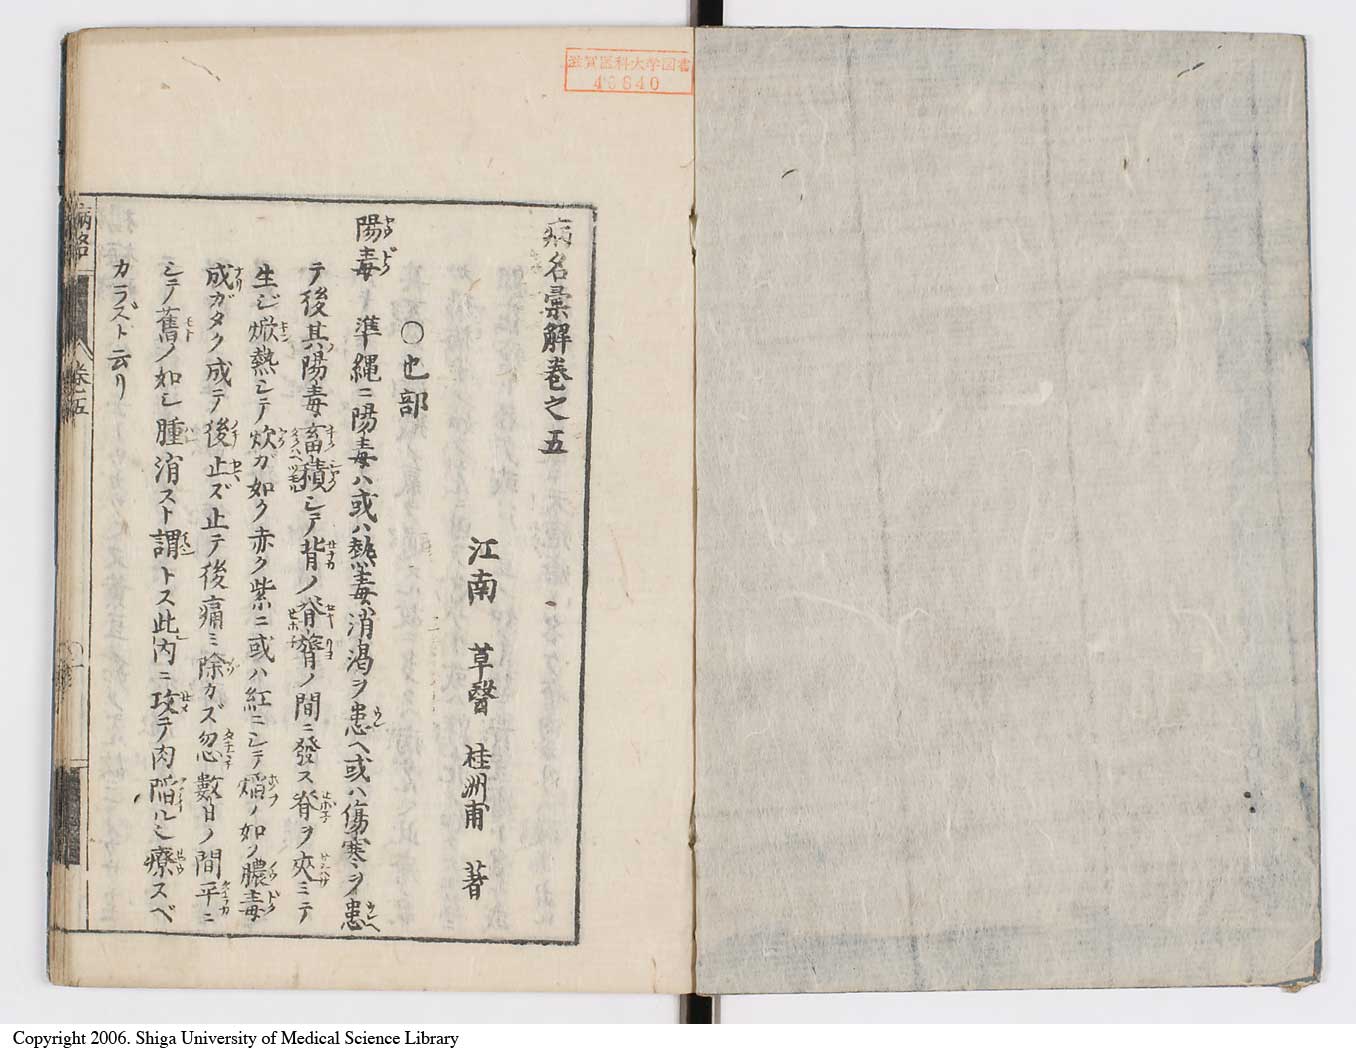 滋賀医科大学図書
48840
病名彙解巻之五
江南 草醫 桂洲甫 著
〇也部
陽毒 準縄ニ陽毒ハ或ハ熱毒消渇ヲ患ヘ或ハ傷寒ヲ患
テ後其陽毒畜積シテ背ノ脊膂ノ間ニ發ス脊ヲ夾ミテ
生ジ焮熱シテ炊ガ如ク赤ク紫ニ或ハ紅ニシテ焰ノ如ク膿毒
成ガタク成テ後止ズ止テ後痛ミ除カズ忽數日ノ間平ニ
シテ舊ノ如シ腫消スト謂トス此内ニ攻テ肉陥ルシ療スベ
カラズト云リ
巻五
Copyright 2006. Shiga University of Medical Science Library